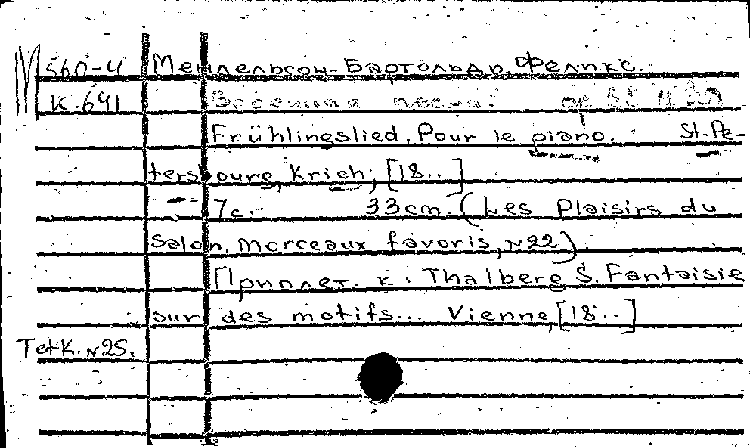 М 560-4 Мендельсон-Бартольди, Феликс.
К.641 Весенняя песня.
Frühlingslied. Pour le piano. St.Pe-
tersbourg, Krich, [18..]
7с. 33cm. (Les Plaisirs du
Salon. Morceaux favoris, №22)
Приплет. к: Thalberg S. Fantaisie
sur des motifs... Vienne, [18..]
Tetk. №25.